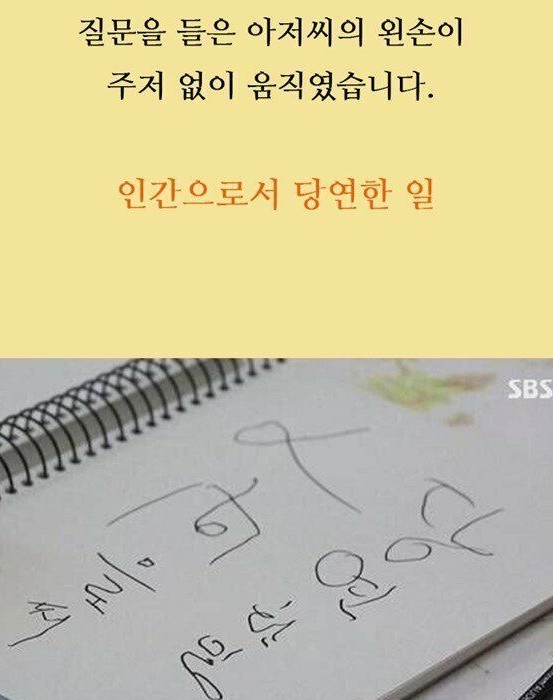 질문을 들은 아저씨의 왼손이
주저 없이 움직였습니다.
인간으로서 당연한 일
SBS
당연한일